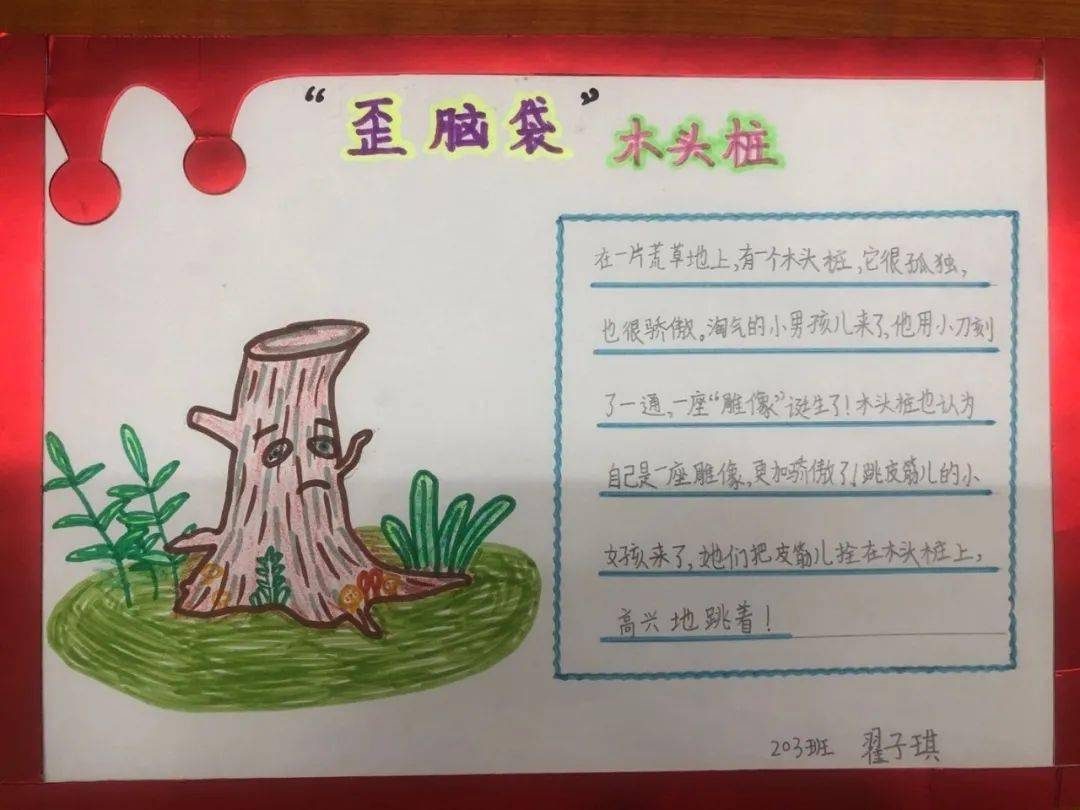 “歪脑袋”木头桩
在一片荒草地上,有一个木头桩,它很孤独,
也很骄傲。淘气的小男孩儿来了,他用小刀刻
了一通,一座“雕像”诞生了!木头桩也认为
自己是一座雕像,更加骄傲了!跳皮筋儿的小
女孩来了,她们把皮筋儿拴在木头桩上,
高兴地跳着!
203班 翟子琪